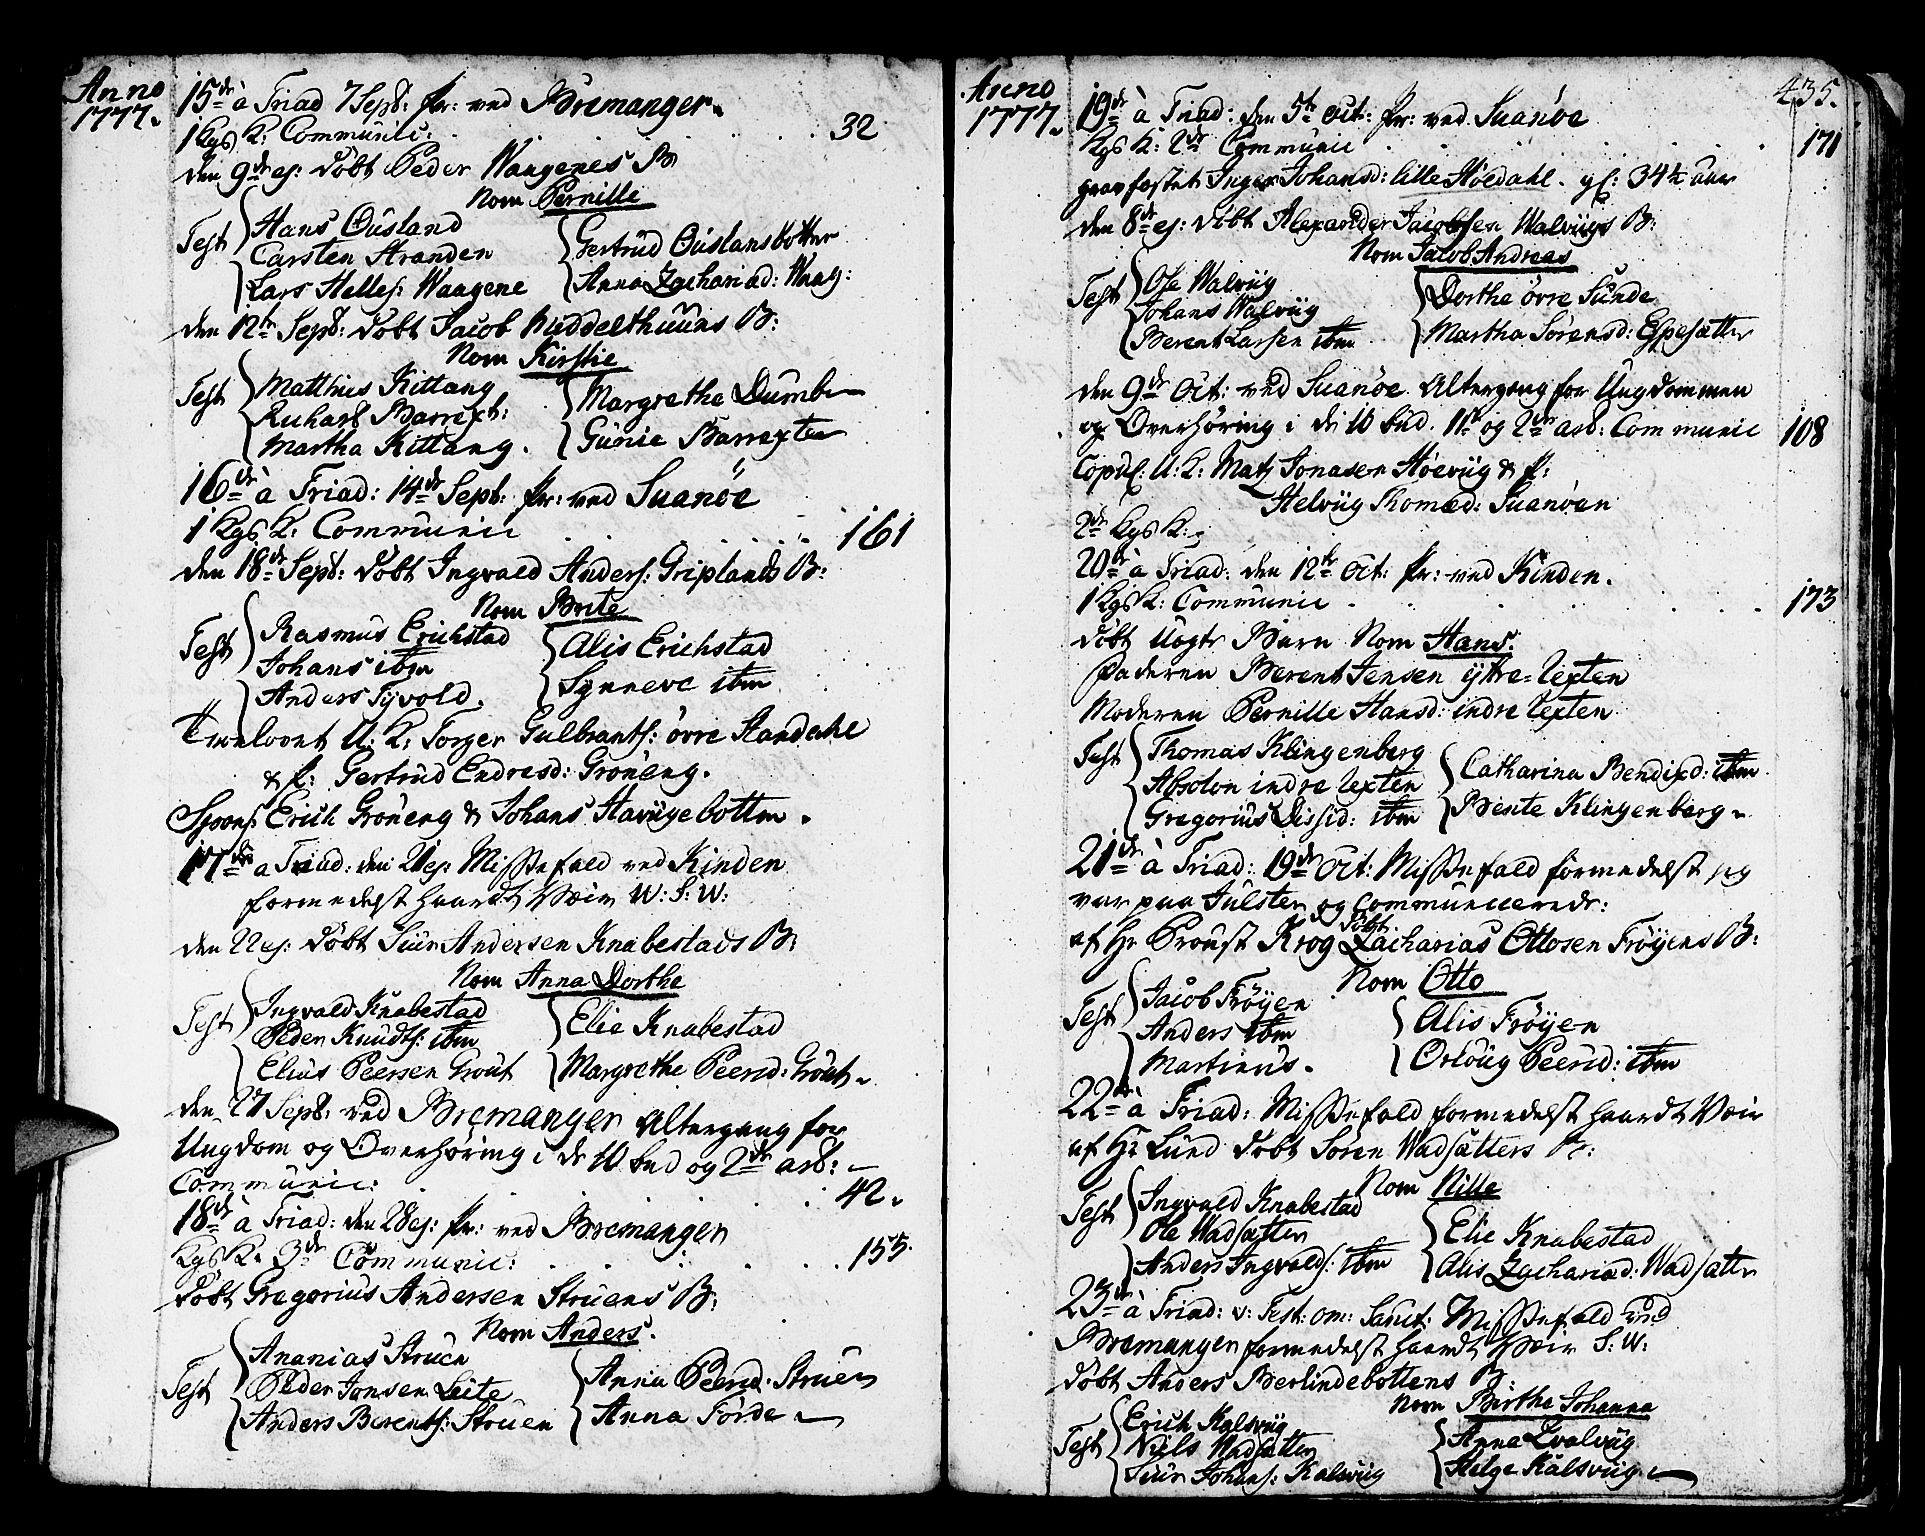 Anno 1777.
15de à Triad 7 Sept: Pr: ved Bremanger.
1 Kgs K: Communic: 32
den 9de ej: døbt Peder Waagenes B:
Nom Pernille
Test Hans Ousland
Carsten Stranden
Lars Helles: Waagene
Gertrud Ouslansbotten
Anna Zachariad: Waag:
den 12te Sept: døbt Jacob Middelthuuns B:
Nom Kirstie
Test Matthies Kittang
Richart Barrext:
Martha Kittang.
Margrethe Dumbe
Gunie Barrexten
16de à Triad: 14de Sept: Pr: ved Suanøe
1 Kgs K: Communic 161
den 18de Sept: døbt Ingvald Anders: Griplands B:
Nom Brite
Test Rasmus Erichstad
Johans ibm
Anders Tyvold.
Alis Erichstad
Synneve ibm
Troelovet U: K: Torger Gulbrants: øvre Standahl
& P: Gertrud Endresd: Grøneng.
Spons: Erich Grøneng & Johans Stavügebotten.
17de a Triad: den 21 ej: Missefald ved Kinden
formedelst haardt Wæir W: S: W:
den 22 ej: døbt Siur Andersen Knabestads B:
Nom Anna Dorthe
Test Ingvald Knabestad
Peder Knudts: ibm
Elias Peersen Grout
Elie Knabestad
Margrethe Peersd: Grout.
den 27 Sept: ved Bremanger Altergang for
Ungdom og Overhøring i de 10 bud og 2de art:
Communic: 42.
18de à Triad: den 28 ej: Pr: ved Bremanger
Kgs K: 3de Communic: 155.
døbt Gregorius Andersen Struens B:
Nom Anders.
Test Ananias Struen
Peder Jonsen Leite
Anders Berents: Struen
Anna Peersd: Struen
Anna Førde
Anno 1777.
435.
19de à Triad: den 5te Oct: Pr: ved Suanøe
Kgs K: 2de Communic 171
gravfæstet Inger Johansd: lille Høedahl. gl: 34½ aar
den 8de ej: døbt Alexander Jacobsen Walvügs B:
Nom Jacob Andreas
Test Ole Walvüg
Johans Walvüg
Berent Larsen ibm
Dorthe øvre Sunde
Martha Sørensd: Espesætter
den 9de Oct: ved Suanøe Altergang for Ungdommen
og Overhøring i de 10 bud. 1te og 2den art: Communic 108
Copul: U: K: Mats Jonasen Høevüg & P:
Helvüg Thomæd: Suanøen
2de Kgs K:
20de à Triad: den 12te Oct: Pr: ved Kinden.
1 Kgs K: Communic 173
døbt Uegte Barn Nom Hans.
Faderen Berent Jensen ÿttre Lexten
Moderen Pernille Hansd: indre Lexten
Test Thomas Klingenberg
Absolon indre Lexten
Gregorius Dissid: ibm
Catharina Bendixd: ibm
Bente Klingenberg
21de à Triad: 19de Oct: Missefald formedelst jeg
var paa Julster og Communicerede:
af Hr Proust Krog døbt Zacharias Ottosen Frøÿens B:
Nom Otto
Test Jacob Frøyen
Anders ibm
Martinus.
Alis Frøÿen
Orloug Peersd: ibm
22de à Triad: Missefald formedelst haardt Wæir
af Hr Lund døbt Søren Wadsætters B:
Nom Nille
Test Ingvald Knabestad
Ole Wadsætter
Anders Ingvalds: ibm
Elie Knabestad
Alis Zachariad: Wadsætter
23de à Triad: v: Fest: om: Sanct: Missefald ved
Bremanger formedelst haardt Wæir S: W:
døbt Anders Berlindebottens B:
Nom Birthe Johanna
Test Erich Kalsvüg
Niels Wadsætter
Siur Johans: Kalsvüg
Anna Qvalvüg
Helge Kalsvüg